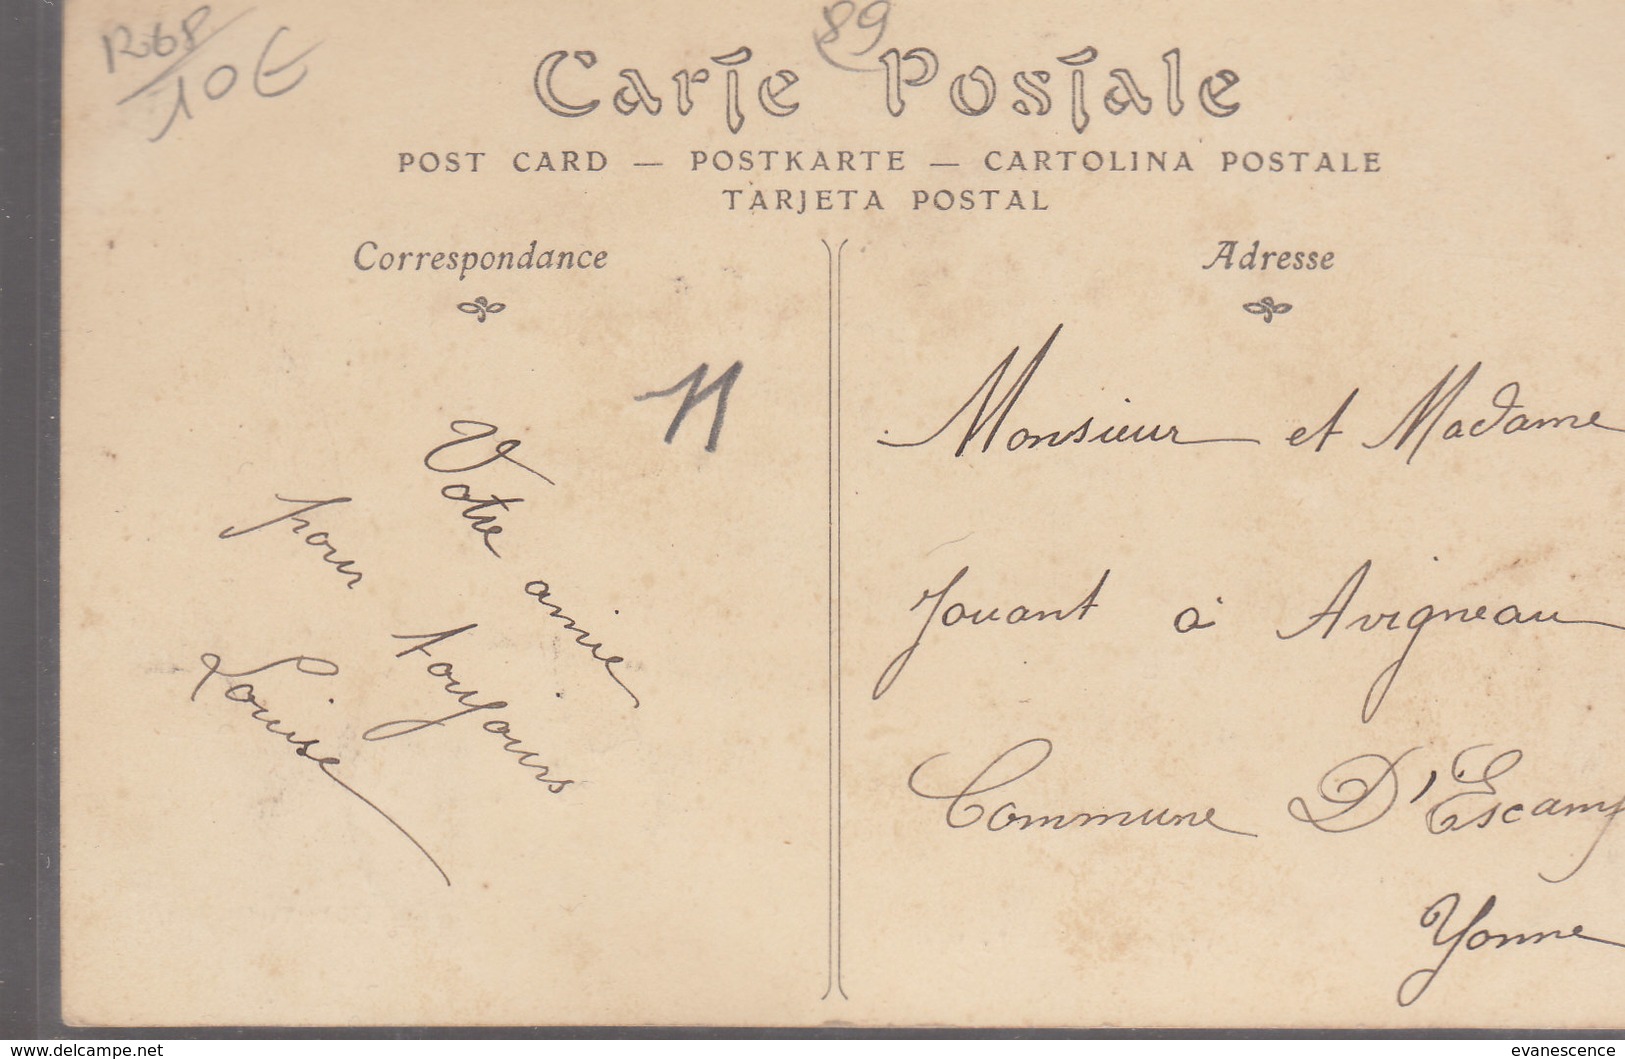 R68
10€
89
Carte Postale
POST CARD — POSTKARTE — CARTOLINA POSTALE
TARJETA POSTAL
Correspondance
Adresse
11
Votre amie
pour toujours
Louise
Monsieur et Madame
Jouant à Avigneau
Commune D'Escamp
Yonne
www.delcampe.net
evanescence